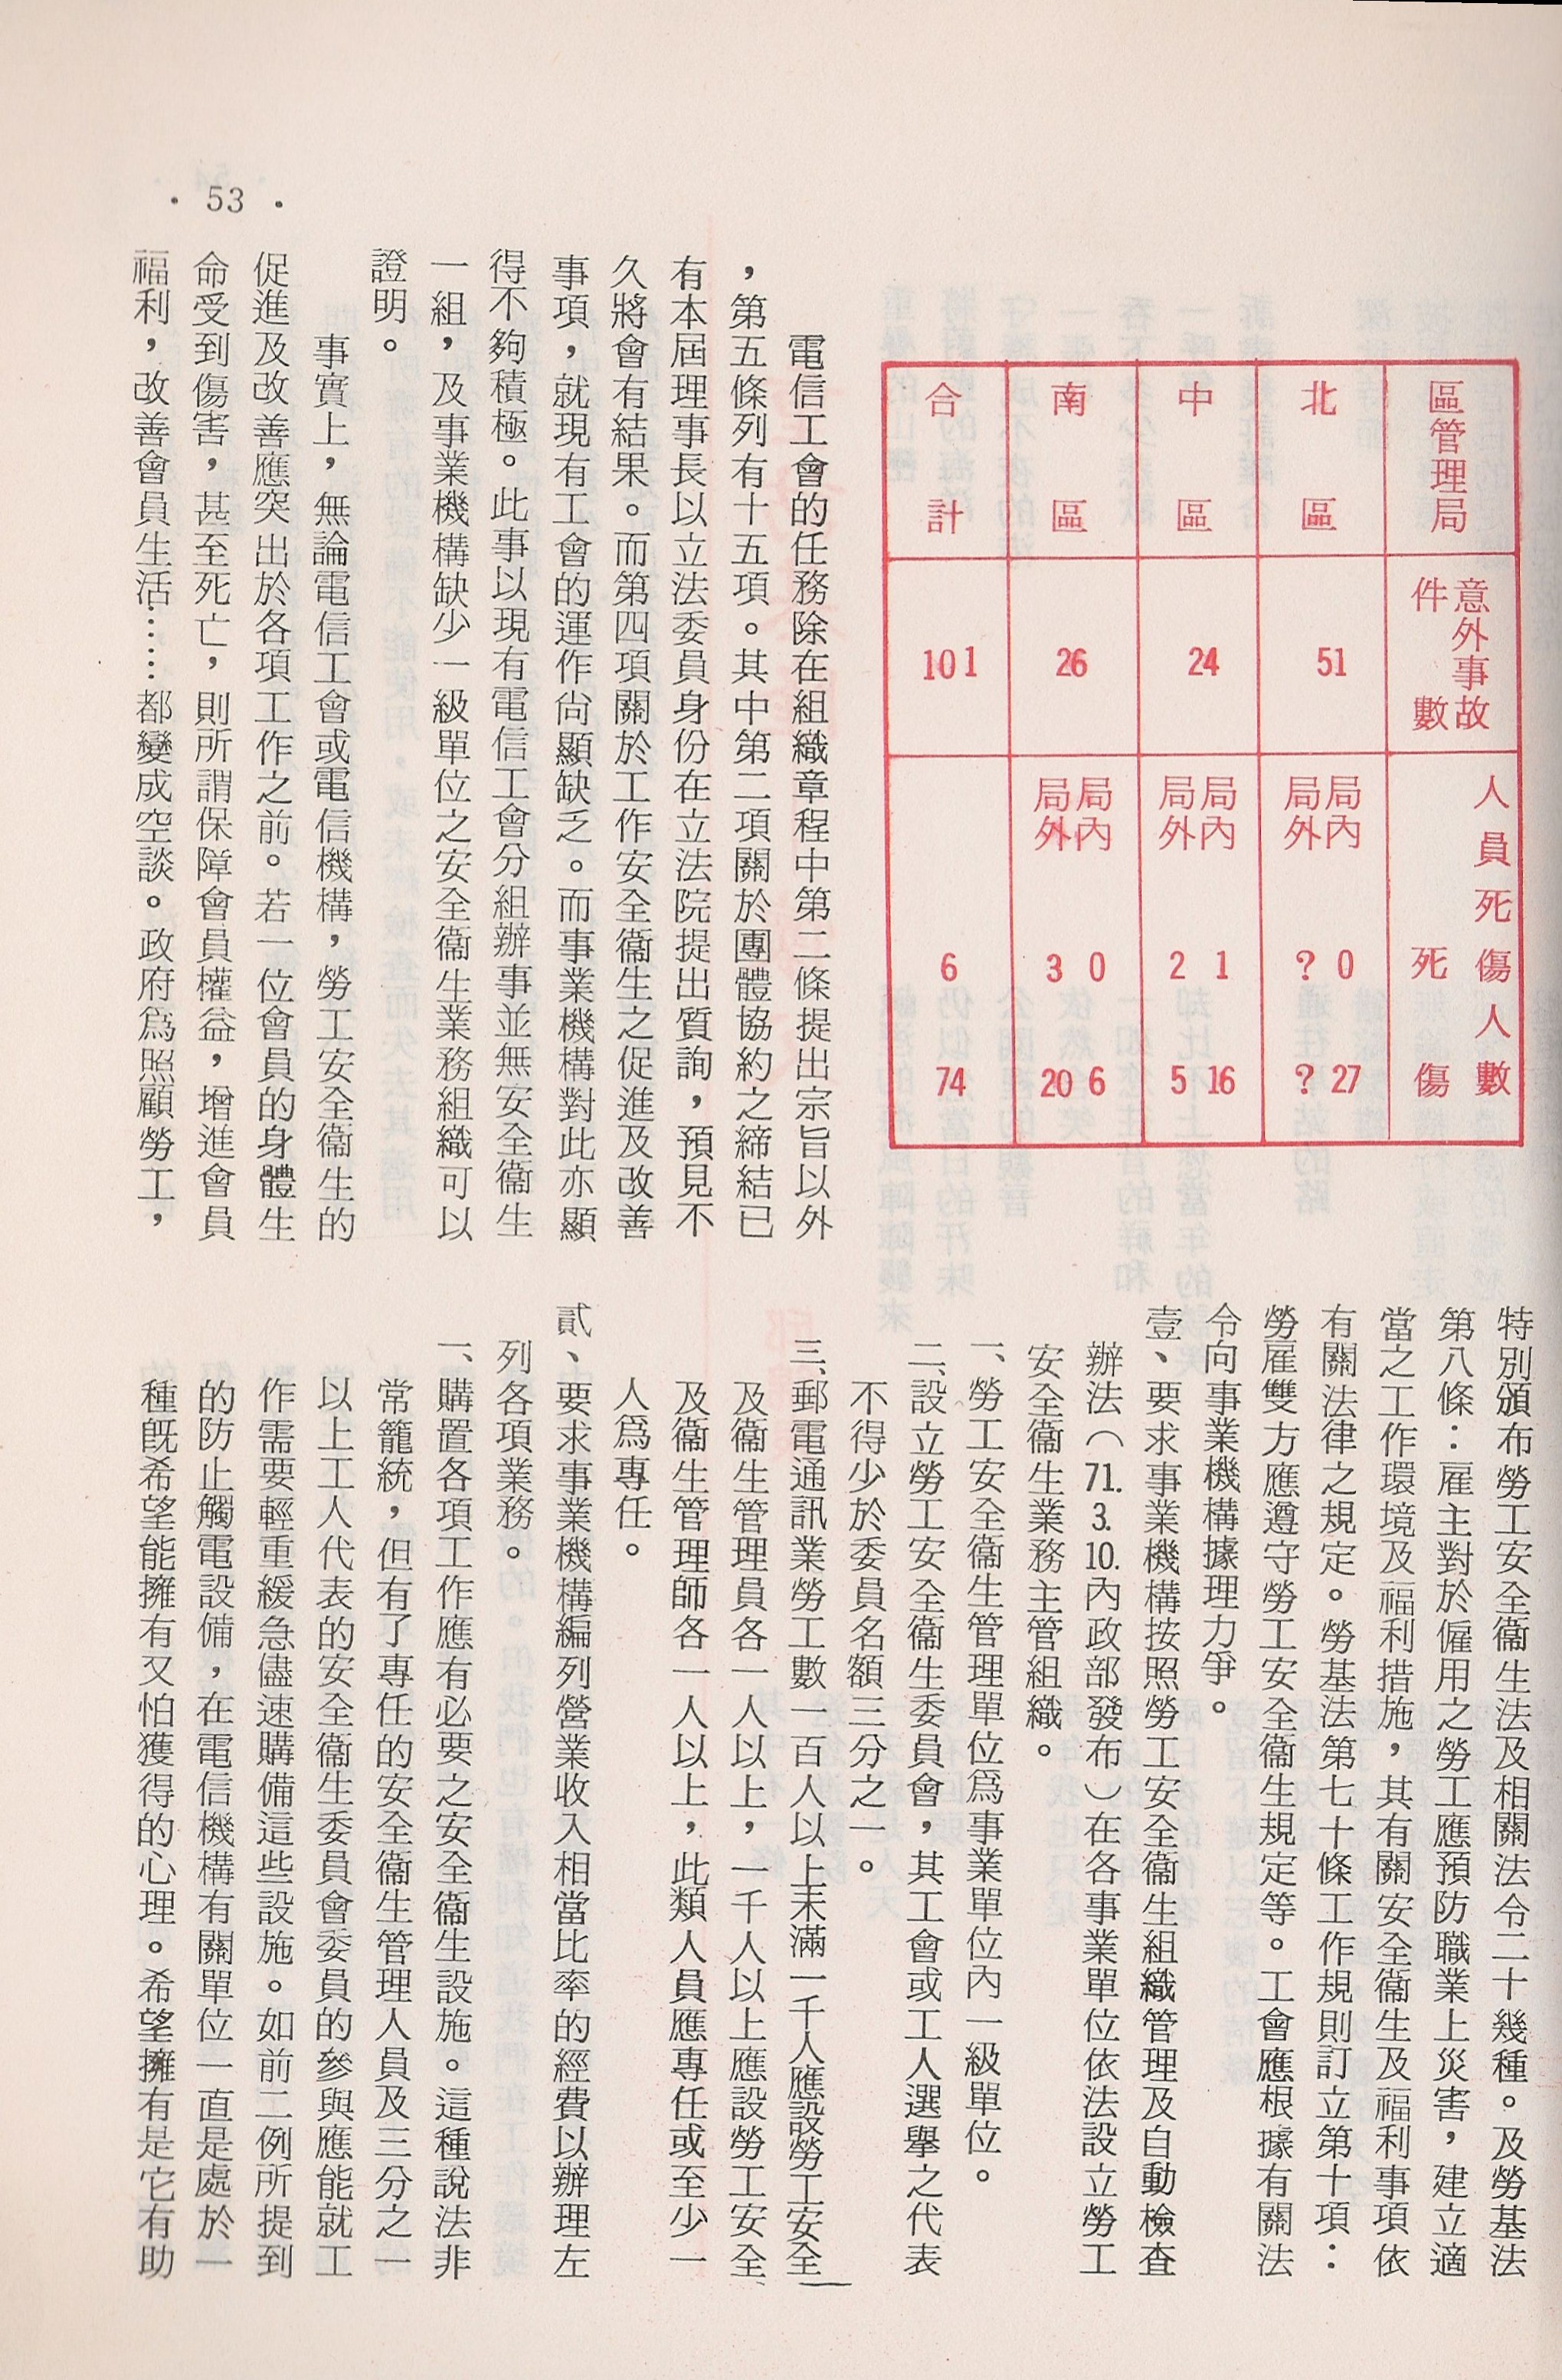 區管理局
意外事故
件數
人員死傷人數
死 傷
北區
51
局內 0 27
局外 ? ?
中區
24
局內 1 16
局外 2 5
南區
26
局內 0 6
局外 3 20
合計
101
6 74
電信工會的任務除在組織章程中第二條提出宗旨以外
，第五條列有十五項。其中第二項關於團體協約之締結已
有本屆理事長以立法委員身份在立法院提出質詢，預見不
久將會有結果。而第四項關於工作安全衞生之促進及改善
事項，就現有工會的運作尙顯缺乏。而事業機構對此亦顯
得不夠積極。此事以現有電信工會分組辦事並無安全衞生
一組，及事業機構缺少一級單位之安全衞生業務組織可以
證明。
事實上，無論電信工會或電信機構，勞工安全衞生的
促進及改善應突出於各項工作之前。若一位會員的身體生
命受到傷害，甚至死亡，則所謂保障會員權益，增進會員
福利，改善會員生活……都變成空談。政府爲照顧勞工，
特別頒布勞工安全衞生法及相關法令二十幾種。及勞基法
第八條：雇主對於僱用之勞工應預防職業上災害，建立適
當之工作環境及福利措施，其有關安全衞生及福利事項依
有關法律之規定。勞基法第七十條工作規則訂立第十項：
勞雇雙方應遵守勞工安全衞生規定等。工會應根據有關法
令向事業機構據理力爭。
壹、要求事業機構按照勞工安全衞生組織管理及自動檢查
辦法（71.3.10.內政部發布）在各事業單位依法設立勞工
安全衞生業務主管組織。
一、勞工安全衞生管理單位爲事業單位內一級單位。
二、設立勞工安全衞生委員會，其工會或工人選舉之代表
不得少於委員名額三分之一。
三、郵電通訊業勞工數一百人以上未滿一千人應設勞工安全
及衞生管理員各一人以上，一千人以上應設勞工安全、
及衞生管理師各一人以上，此類人員應專任或至少一
人爲專任。
貳、要求事業機構編列營業收入相當比率的經費以辦理左
列各項業務。
一、購置各項工作應有必要之安全衞生設施。這種說法非
常籠統，但有了專任的安全衞生管理人員及三分之一
以上工人代表的安全衞生委員會委員的參與應能就工
作需要輕重緩急儘速購備這些設施。如前二例所提到
的防止觸電設備，在電信機構有關單位一直是處於一
種旣希望能擁有又怕獲得的心理。希望擁有是它有助
· 53 ·